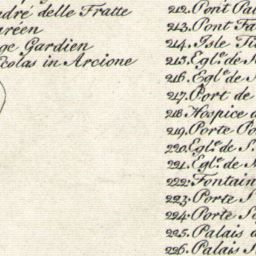 dré delle Fratte
aréen
ge Gardien
colas in Arcione
212. Pont Pa
213. Pont Fa
214. Isle
215. Egl.e de
216. Egl.e de
217. Port de
218. Hospice d
219. Porte Po
220. Egl.e de S.
221. Egl.e de
222. Fontain
223. Porte S
224. Porte Se
225. Palais d
226. Palais